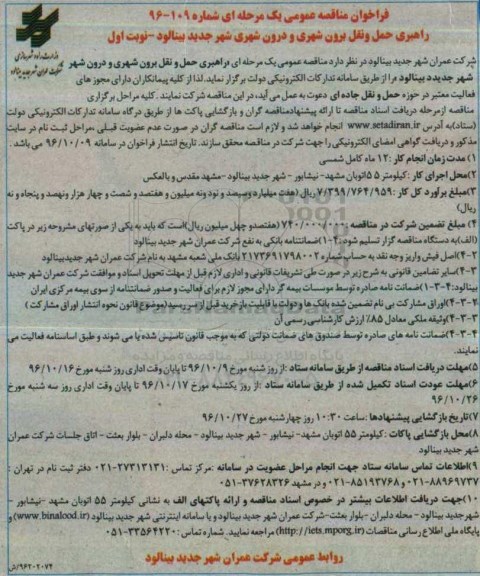 فراخوان مناقصه عمومی یک مرحله ای شماره ۱۰۹-۹۶
راهبری حمل ونقل برون شهری و درون شهری شهر جدید بینالود -نوبت اول
شرکت عمران شهر جدید بینالود در نظر دارد مناقصه عمومی یک مرحله ای «راهبری حمل و نقل برون شهری و درون شهر
شهر جدیدد بینالود» را از طریق سامانه تدارکات الکترونیکی دولت برگزار نماید. لذا از کلیه پیمانکاران دارای مجوز های
فعالیت معتبر در حوزه حمل و نقل جاده ای دعوت به عمل می آید، در این مناقصه شرکت نمایند. کلیه مراحل برگزاری
مناقصه ازمرحله دریافت اسناد مناقصه تا ارائه پیشنهادمناقصه گران و بازگشایی پاکت ها از طریق درگاه سامانه تدارکات الکترونیکی دولت
(ستاد)به آدرس www.setadiran.ir انجام خواهد شد و لازم است مناقصه گران در صورت عدم عضویت قبلی ،مراحل ثبت نام در سایت
مذکور و دریافت گواهی امضای الکترونیکی را جهت شرکت در مناقصه محقق سازند. تاریخ انتشار فراخوان در سامانه ۹۶/۱۰/۰۹ می باشد .
۱) مدت زمان انجام کار :۱۲ ماه کامل شمسی
۲)محل اجرای کار :کیلومتر ۵۵ اتوبان مشهد- نیشابور - شهر جدید بینالود -مشهد مقدس و بالعکس
۳)مبلغ برآورد کل کار :۷/۳۹۹/۷۶۴/۹۵۹ ریال (هفت میلیارد وسیصد و نود ونه میلیون و هفتصد و شصت و چهار هزار ونهصد و پنجاه و نه
ریال)
۴) مبلغ تضمین شرکت در مناقصه :۷۴۰/۰۰۰/۰۰۰ (هفتصدو چهل میلیون ریال)است که باید به یکی از صورتهای مشروحه زیر در پاکت
(الف)به دستگاه مناقصه گزار تسلیم شود .۱-۴)ضمانتنامه بانکی به نفع شرکت عمران شهر جدید بینالود
۲-۴)اصل فیش واریز وجه نقد به حساب شماره ۲۱۷۳۶۹۱۷۹۸۰۰۲ بانک ملی شعبه مشهد به نام شرکت عمران شهر جدیدبینالود
۳-۴)سایر تضامین قانونی به شرح زیر در صورت طی تشریفات قانونی و اداری لازم قبل از مهلت تحویل اسناد و موافقت شرکت عمران شهر جدید
بینالود:۱-۳-۴)ضمانت نامه صادره توسط موسسات بیمه گر دارای مجوز لازم برای فعالیت و صدور ضمانتنامه از سوی بیمه مرکزی ایران
۲-۳-۴)اوراق مشارکت بی نام تضمین شده بانک ها و دولت با قابلیت بازخرید قبل از سررسید(موضوع قانون نحوه انتشار اوراق مشارکت )
۳-۳-۴)وثیقه ملکی معادل ۸۵٪ ارزش کارشناسی رسمی آن
۴-۳-۴)ضمانت نامه های صادره توسط صندوق های ضمانت دولتی که به موجب قانون تاسیس شده یا می شوند و طبق اساسنامه فعالیت می
نمایند.
۵)مهلت دریافت اسناد مناقصه از طریق سامانه ستاد :از روز شنبه مورخ ۹۶/۱۰/۹ تا پایان وقت اداری روز شنبه مورخ ۹۶/۱۰/۱۶
۶)مهلت عودت اسناد تکمیل شده از طریق سامانه ستاد :از روز یکشنبه مورخ ۹۶/۱۰/۱۷ تا پایان وقت اداری روز سه شنبه مورخ
۹۶/۱۰/۲۶
۷)تاریخ بازگشایی پیشنهادها :ساعت ۱۰:۳۰ روز چهارشنبه مورخ ۹۶/۱۰/۲۷
۸)محل بازگشایی پاکات :کیلومتر ۵۵ اتوبان مشهد- نیشابور - شهر جدید بینالود - محله دلبران - بلوار بعثت - اتاق جلسات شرکت عمران
شهر جدید بینالود
۹)اطلاعات تماس سامانه ستاد جهت انجام مراحل عضویت در سامانه :مرکز تماس :۲۷۳۱۳۱۳۱-۰۲۱ دفتر ثبت نام در تهران :
۸۸۹۶۹۷۳۷-۰۲۱ و ۸۵۱۹۳۷۶۸-۰۲۱ و در مشهد ۳۷۶۲۸۳۲۶-۰۵۱
۱۰)جهت دریافت اطلاعات بیشتر در خصوص اسناد مناقصه و ارائه پاکتهای الف به نشانی کیلومتر ۵۵ اتوبان مشهد -نیشابور -
شهر جدید بینالود - محله دلبران -بلوار بعثت-شرکت عمران شهر جدید بینالود و یا سامانه اینترنتی شهر جدید بینالود (www.binalood.ir) و
پایگاه ملی اطلاع رسانی مناقصات (http://iets.mporg.ir) مراجعه نمایید. شماره تماس :۳۳۵۶۴۲۲۰-۰۵۱
روابط عمومی شرکت عمران شهر جدید بینالود
۹۶۲۰۲۰۷۴/ش